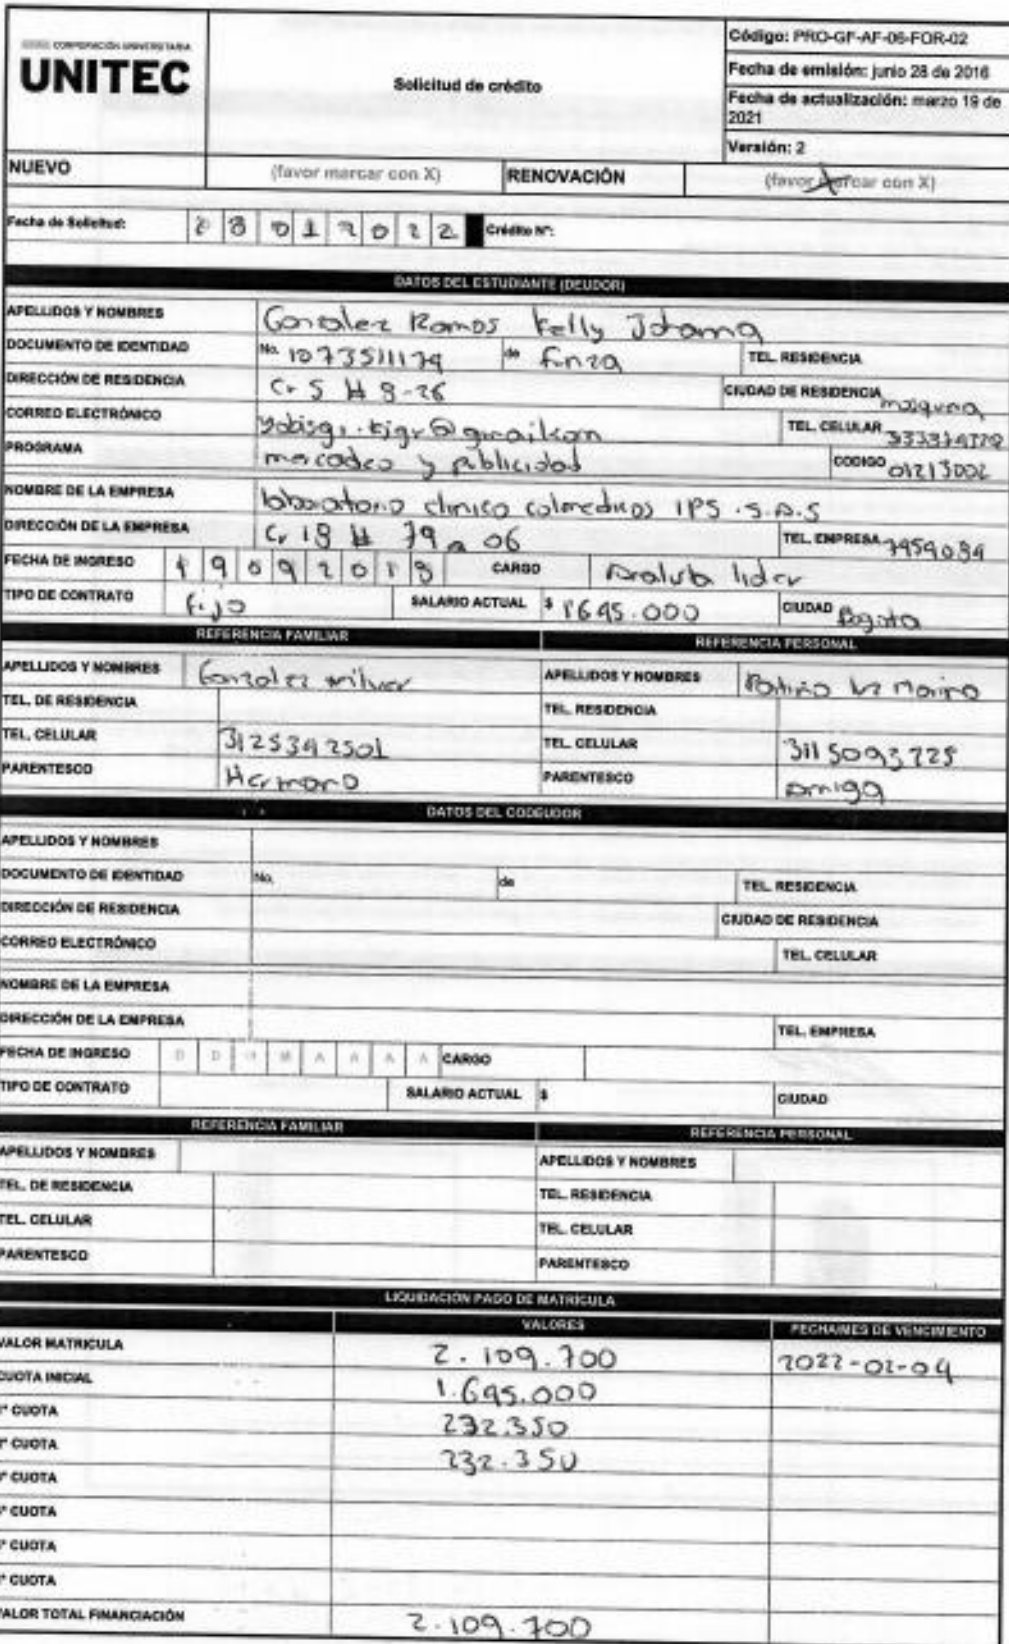 CORPORACIÓN UNIVERSITARIA
UNITEC
Solicitud de crédito
Código: PRO-GF-AF-06-FOR-02
Fecha de emisión: junio 28 de 2016
Fecha de actualización: marzo 19 de 2021
Versión: 2
NUEVO (favor marcar con X) RENOVACIÓN (favor marcar con X) X
Fecha de Solicitud: 28012022 Crédito N°:
DATOS DEL ESTUDIANTE (DEUDOR)
APELLIDOS Y NOMBRES Gonzalez Ramos Kelly Johanna
DOCUMENTO DE IDENTIDAD No. 1073511179 de funza TEL. RESIDENCIA
DIRECCIÓN DE RESIDENCIA Cr 5 # 9-26 CIUDAD DE RESIDENCIA mosquera
CORREO ELECTRÓNICO TEL. CELULAR
PROGRAMA mercadeo y publicidad CODIGO 01213002
NOMBRE DE LA EMPRESA laboratorio clinico colmedicos IPS .S.A.S
DIRECCIÓN DE LA EMPRESA Cr 18 # 79 a 06 TEL. EMPRESA
FECHA DE INGRESO 19092018 CARGO Analista lider
TIPO DE CONTRATO fijo SALARIO ACTUAL $ 1645.000 CIUDAD Bogota
REFERENCIA FAMILIAR REFERENCIA PERSONAL
APELLIDOS Y NOMBRES Gonzalez wilmer APELLIDOS Y NOMBRES Patiño luz
TEL. DE RESIDENCIA TEL. RESIDENCIA
TEL. CELULAR 3125392501 TEL. CELULAR 3115093225
PARENTESCO Hermano PARENTESCO Amiga
DATOS DEL CODEUDOR
APELLIDOS Y NOMBRES
DOCUMENTO DE IDENTIDAD No. de TEL. RESIDENCIA
DIRECCIÓN DE RESIDENCIA CIUDAD DE RESIDENCIA
CORREO ELECTRÓNICO TEL. CELULAR
NOMBRE DE LA EMPRESA
DIRECCIÓN DE LA EMPRESA TEL. EMPRESA
FECHA DE INGRESO D D M M A A A A CARGO
TIPO DE CONTRATO SALARIO ACTUAL $ CIUDAD
REFERENCIA FAMILIAR REFERENCIA PERSONAL
APELLIDOS Y NOMBRES APELLIDOS Y NOMBRES
TEL. DE RESIDENCIA TEL. RESIDENCIA
TEL. CELULAR TEL. CELULAR
PARENTESCO PARENTESCO
LIQUIDACIÓN PAGO DE MATRICULA
VALORES FECHA/MES DE VENCIMIENTO
VALOR MATRICULA 2.109.700 2022-02-04
CUOTA INICIAL 1.645.000
CUOTA 232.350
CUOTA 232.350
CUOTA
CUOTA
CUOTA
CUOTA
VALOR TOTAL FINANCIACIÓN 2.109.700